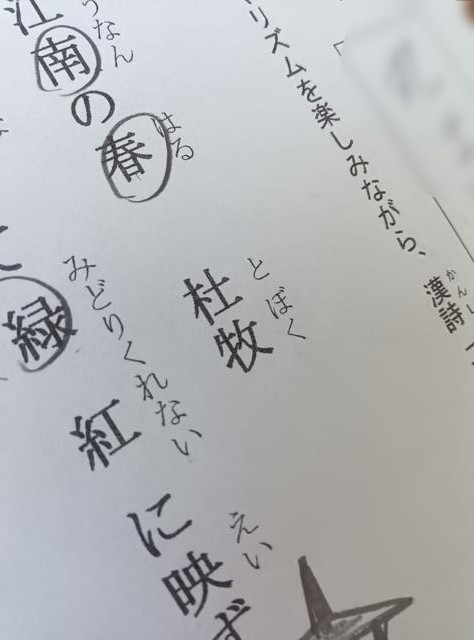 リズムを楽しみながら、漢詩
かん
江南の春
うなん はる
杜牧
とぼく
緑紅に映ず
みどりくれない えい